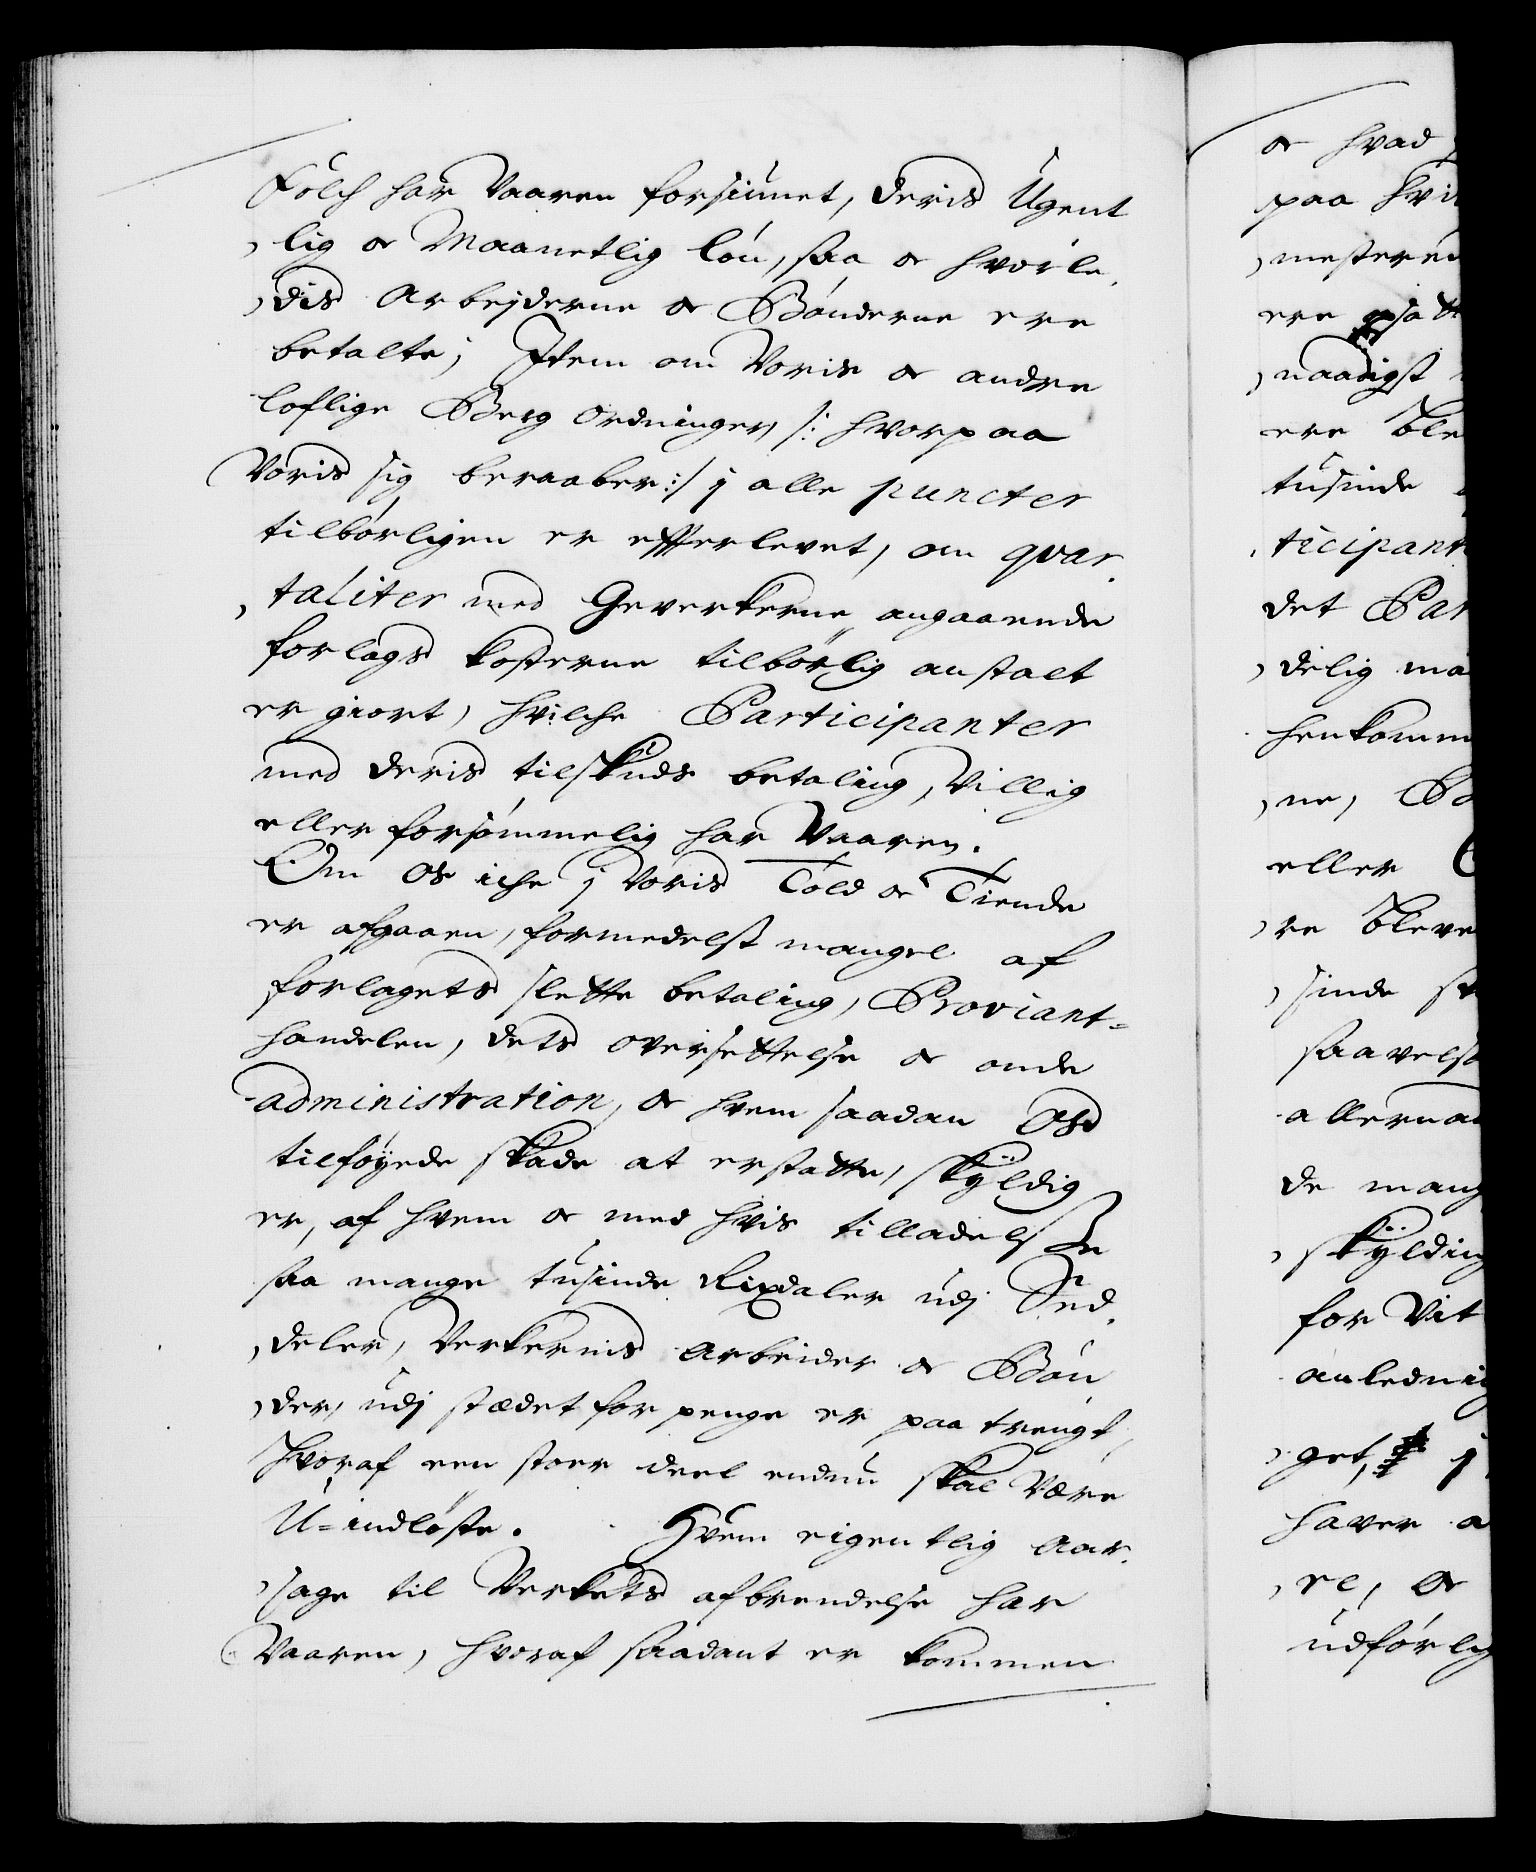 Folch har Vaaren forsiumet, deris Ugent
lig oc Maanetlig løn, saa oc hvorle,
dis Arbejderne oc Bønderne ere
betalte; Item om Voris oc andre
loflige Berg ordninger /: hvorpaa
Voris sig beraaber :/ j alle puncter
tilbørligen er efterlevet, om qvar,
taliter med Geverkerne angaaende
forlags kosterne tilbørlig anstalt
er giort, hvilche Participanter
med deris tilskuds betaling, Villig
eller forsømmelig har Vaaren.
Om os iche j Voris Told oc Tiende
er afgaaen, formedelst mangel af
forlagets slette betaling, Proviant=
handelen, dets oversettelse oc onde
administration, oc hvem saadan Os
tilføyede skade at erstatte, skÿldig
er, af hvem oc med hvis tilladelse
saa mange tusinde Rixdaler udj Sed,
deler, Verkernis Arbeider oc Bøn
der, udj stædet for penge er paa trengt,
hvoraf een stoer deel endnu skal Være
U=indløste. Hvem eigentlig Aar,
sage til Verkets afbrendelse har
Vaaren, hvoraf saadant er kommen
oc hvad
paa hvi
mesteren
ere
naadigst
ere ble
tusinde
ticipant
det Par
delig ma
henkomm
ne, Bø
eller
re bleve
sinde
saavels
allernaa
de mang
skÿlding
for Vit
anledni
get, j
haver a
re, oc
udførlig